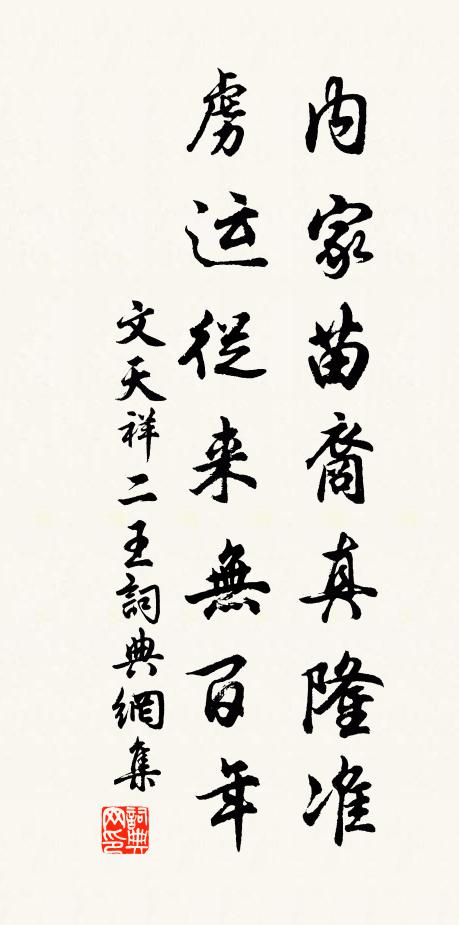 内家苗裔真隆准
虏运從来無百年
文天祥二王詞典網集
詞典网印